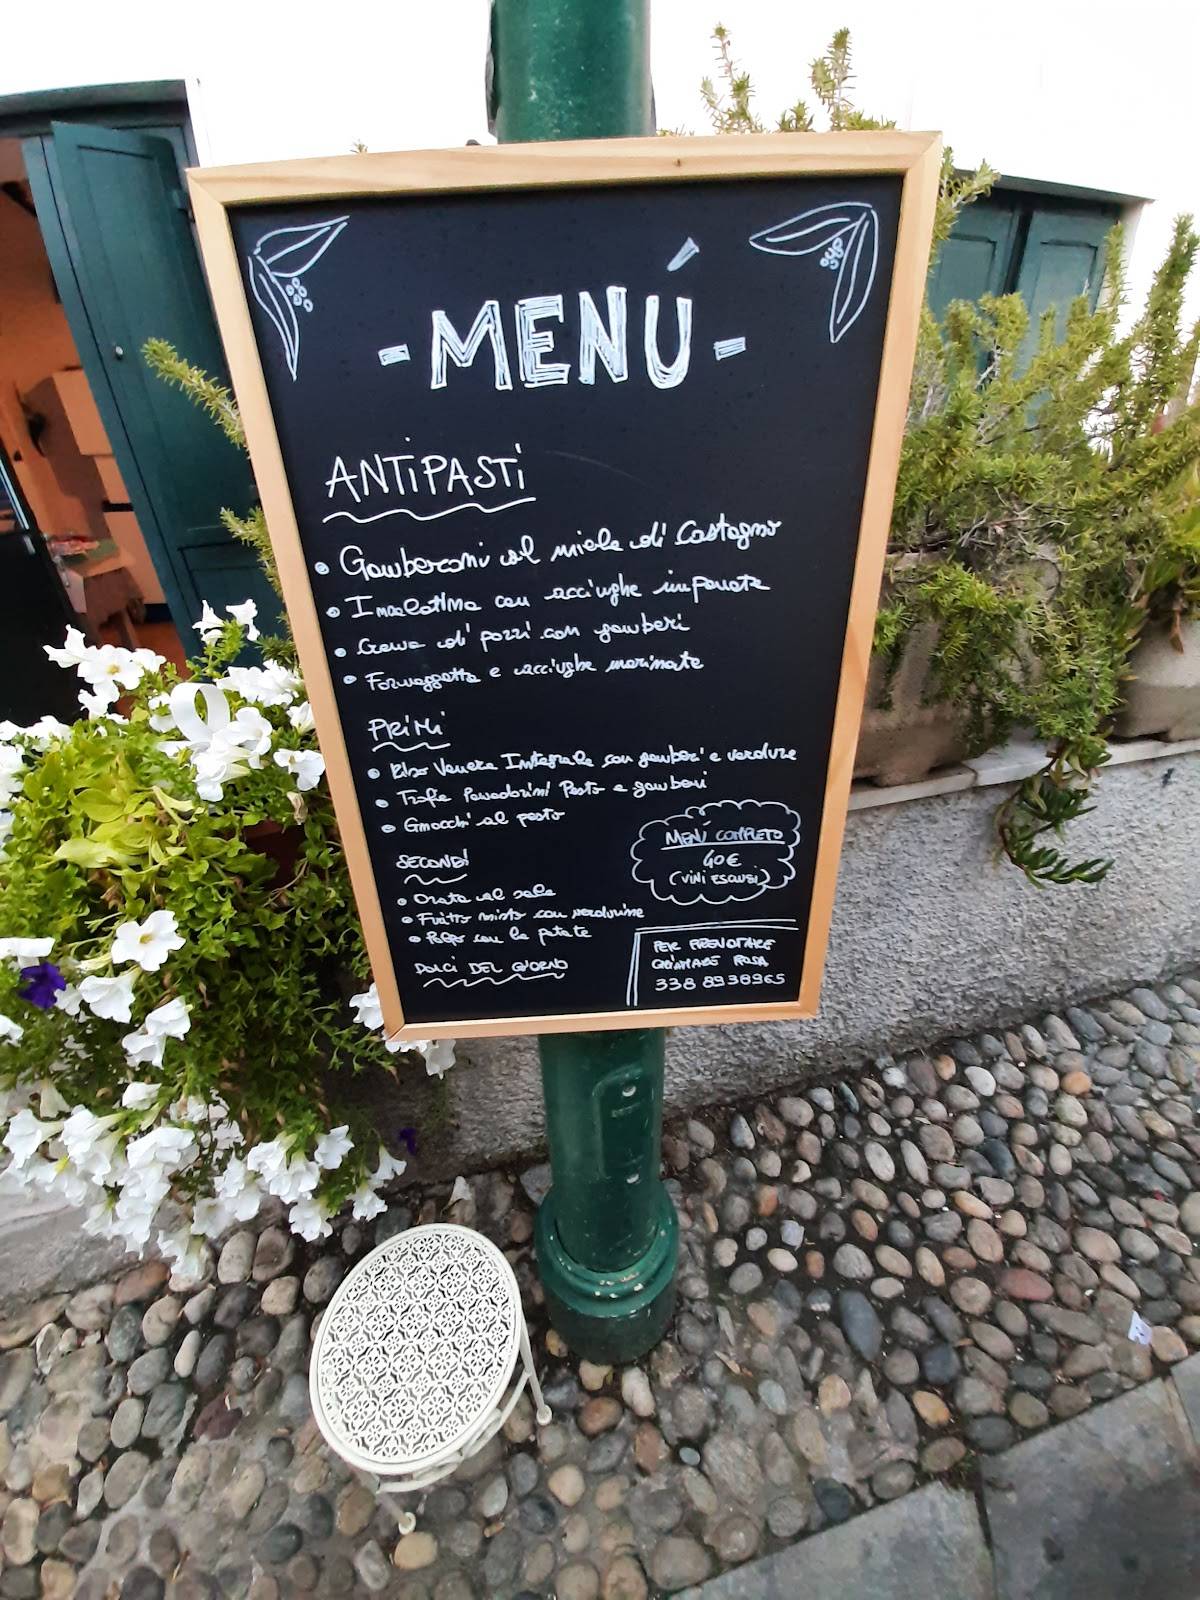 -MENÚ-
ANTIPASTI
• Gamberoni al miele di Castagno
• Insalatina con acciughe impanate
• Crema di pozzi con gamberi
• Formaggetta e acciughe marinate
PRIMI
• Riso Venere Integrale con gamberi e verdure
• Trofie Pomodorini Pesto e gamberi
• Gnocchi al pesto
SECONDI
• Orata al sale
• Fritto misto con verdurine
• Polpo con le patate
DOLCI DEL GIORNO
MENÚ COMPLETO
40€
(VINI ESCLUSI)
PER PRENOTARE
CHIAMARE ROSA
338 8938965